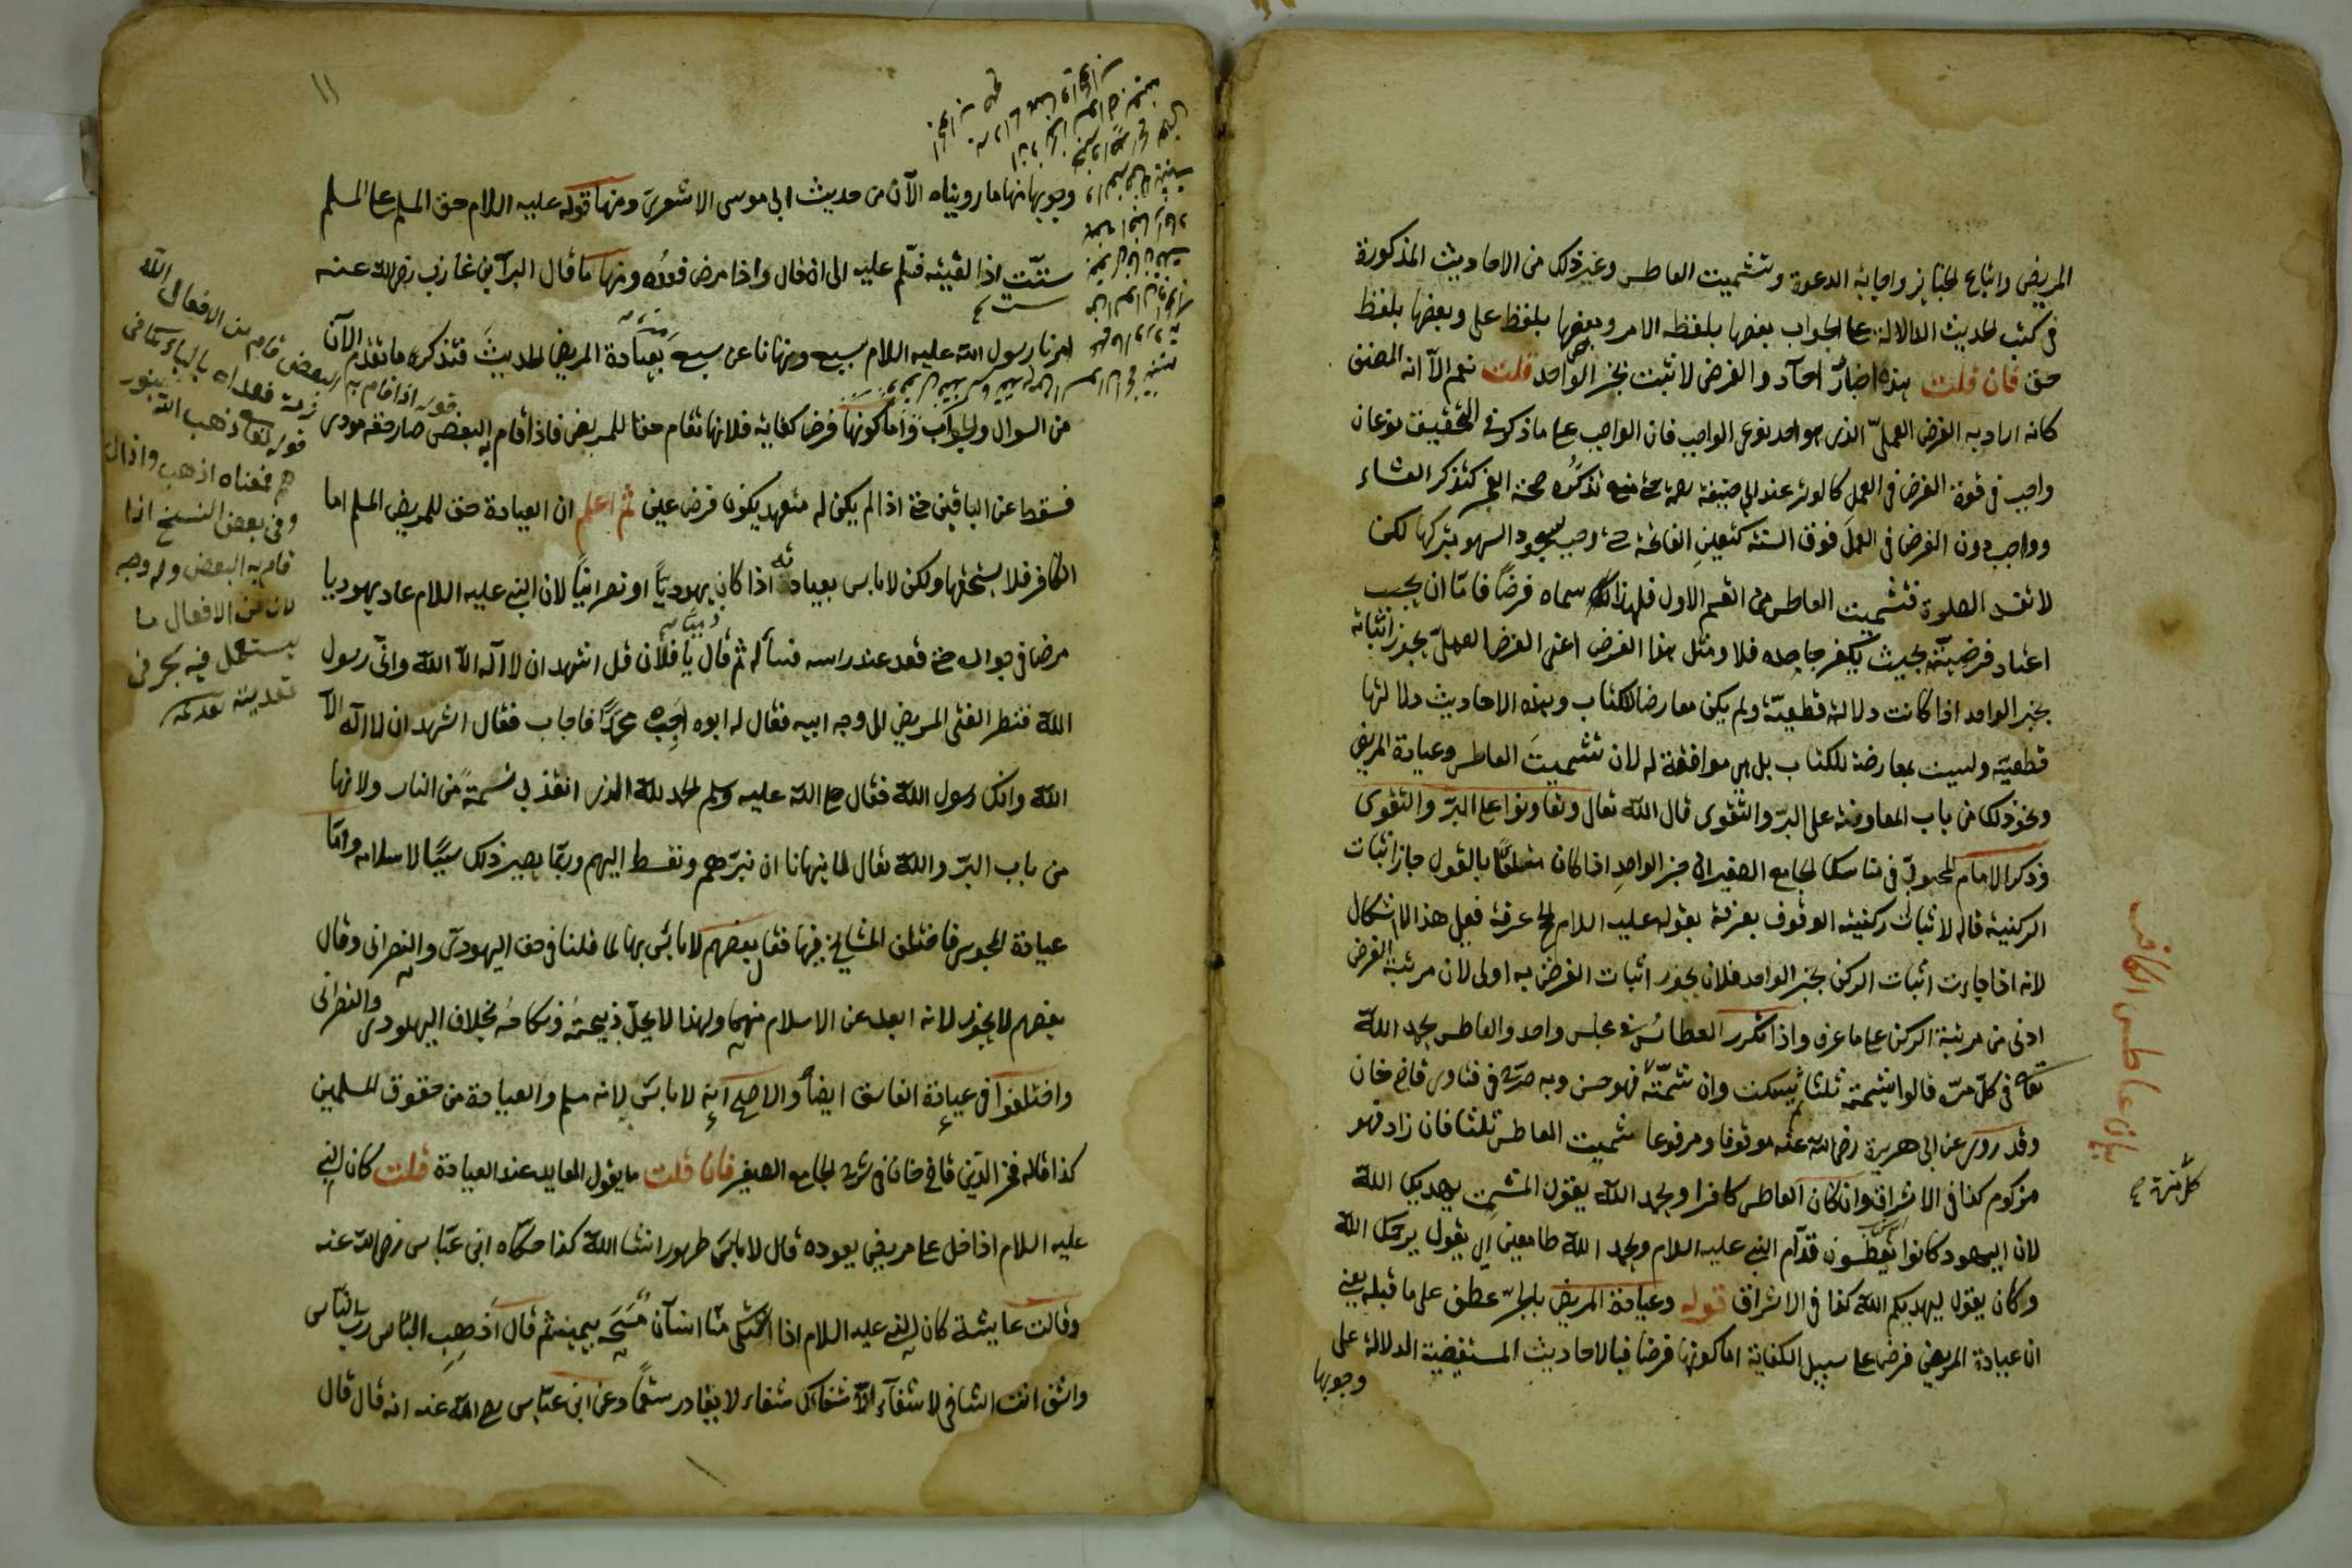 المريض واتباع الجنايز واجابة الدعوة وتشميت العاطس وغير ذلك من الاحاديث المذكورة
في كتب الحديث الدلالة على الجواب بعضها بلفظ الامر وبعضها بلفظ على وبعضها بلفظ
حق فان قلت هذه اخبار آحاد والفرض لا تثبت بخبر الواحد قلت نعم الا انه المصنف
كانه اراد به الفرض العملي الذي هو احد نوعي الواجب فان الواجب على ما ذكر في التحقيق نوعان
واجب في قوة الفرض في العمل كالوتر عند ابي حنيفة رحمه حتى منع تذكره صحة الفجر كتذكر العشاء
وواجب دون الفرض في العمل فوق السنة كتعيين الفاتحة حتى وجب سجود السهو بتركها لكن
لا تفسد الصلوة فتشميت العاطس من القسم الاول فلهذا سماه فرضا فاما ان يجب
اعتقاد فرضيته بحيث يكفر جاحده فلا ومثل هذا الفرض اعني الفرض العملي يجوز اثباته
بخبر الواحد اذا كانت دلالته قطعية ولم يكن معارضا للكتاب وهذه الاحاديث دلالتها
قطعية وليست بمعارضة للكتاب بل هي موافقة له لان تشميت العاطس وعيادة المريض
ونحو ذلك من باب المعاونة على البر والتقوى قال الله تعالى وتعاونوا على البر والتقوى
وذكر الامام المحبوبي في مناسك الجامع الصغير ان خبر الواحد اذا كان متلقا بالقبول جاز اثبات
الركنية قاله لاثبات ركنية الوقوف بعرفة بقوله عليه السلام الحج عرفة فعلى هذا لا اشكال
لانه اذا جازت اثبات الركن بخبر الواحد فلان يجوز اثبات الفرض به اولى لان مرتبة الفرض
ادنى من مرتبة الركن على ما عرف واذا تكرر العطاس في مجلس واحد والعاطس يحمد الله
تعالى في كل مرة قالوا يشمته ثلثا ثم يسكت وان شمته فهو حسن وبه صرح في فتاوى قاضي خان
كل مرة صح
وقد روى عن ابي هريرة رضي الله عنه موقوفا ومرفوعا شميت العاطس ثلثا فان زاد فهو
مزكوم كذا في الاشراق وان كان العاطس كافرا ويحمد الله يقول المشمت يهديك الله
لان اليهود كانوا يعطسون قدام النبي عليه السلام ويحمد الله طامعين ان يقول يرحمك الله
وكان يقول ليهديكم الله كذا في الاشراق قوله وعيادة المريض بالجر عطف على ما قبله يعني
ان عيادة المريض فرض على سبيل الكفاية اما كونها فرضا فبالاحاديث المستفيضة الدلالة على
وجوبها
بيان عاطس الكافر
١١
وجوبها منها ما رويناه الآن من حديث ابي موسى الاشعري ومنها قوله عليه السلام حق المسلم على المسلم
ستت اذا لقيته فسلم عليه الى ان قال واذا مرض فعده ومنها ما قال البراء بن عازب رضي الله عنه
ست صح
امرنا رسول الله عليه السلام بسبع ونهانا عن سبع بعيادة المريض الحديث فتذكر ما تقدم الآن
من السوال والجواب واما كونها فرض كفاية فلانها تقام حقا للمريض فاذا قام به البعض صار حقه مودى
فسقط عن الباقين حتى اذا لم يكن له متعهد يكون فرض عين ثم اعلم ان العيادة حق للمريض المسلم اما
الكافر فلا يستحقها ولكن لا باس بعيادته اذا كان يهوديا او نصرانيا لان النبي عليه السلام عاد يهوديا
مرض في جواره حتى قعد عند راسه فسأله ثم قال يا فلان قل اشهد ان لا اله الا الله واني رسول
الله فنظر الفتى المريض الى وجه ابيه فقال له ابوه اجب محمدا فاجاب فقال اشهد ان لا اله الا
الله وانك رسول الله فقال صلى الله عليه وسلم الحمد لله الذي انقذ بي نسمة من النار ولانها
من باب البر والله تعالى لما ينهانا ان نبرهم ونقسط اليهم وربما يصير ذلك سببا لاسلامه واما
عيادة المجوس فاختلف المشايخ فيها فقال بعضهم لا باس بها لما قلنا في حق اليهودي والنصراني وقال
بعضهم لا يجوز لانه ابعد عن الاسلام منهما ولهذا لا يحل ذبيحته ونكاحه بخلاف اليهودي والنصراني
واختلفوا في عيادة الفاسق ايضا والاصح انه لا باس لانه مسلم والعيادة من حقوق المسلمين
كذا قاله فخر الدين قاضي خان في شرح الجامع الصغير فان قلت ما يقول العايد عند العيادة قلت كان النبي
عليه السلام اذا دخل على مريض يعوده قال لا باس طهور انشا الله كذا حكاه ابن عباس رضي الله عنه
وقالت عايشة كان النبي عليه السلام اذا اشتكى منا انسان مسحه بيمينه ثم قال اذهب الباس رب الناس
واشف انت الشافي لا شفاء الا شفاءك شفاء لا يغادر سقما وعن ابن عباس رضي الله عنه انه قال قال
قوله اذا قام به البعض قام من الافعال اللا
زمة فعداه بالباء كما في
قوله تعالى ذهب الله بنور
هم فمعناه اذهب واذال
وفي بعض النسخ اذا
قام به البعض وله وجه
لان من الافعال ما
يستعمل فيه بحر في
تعديته